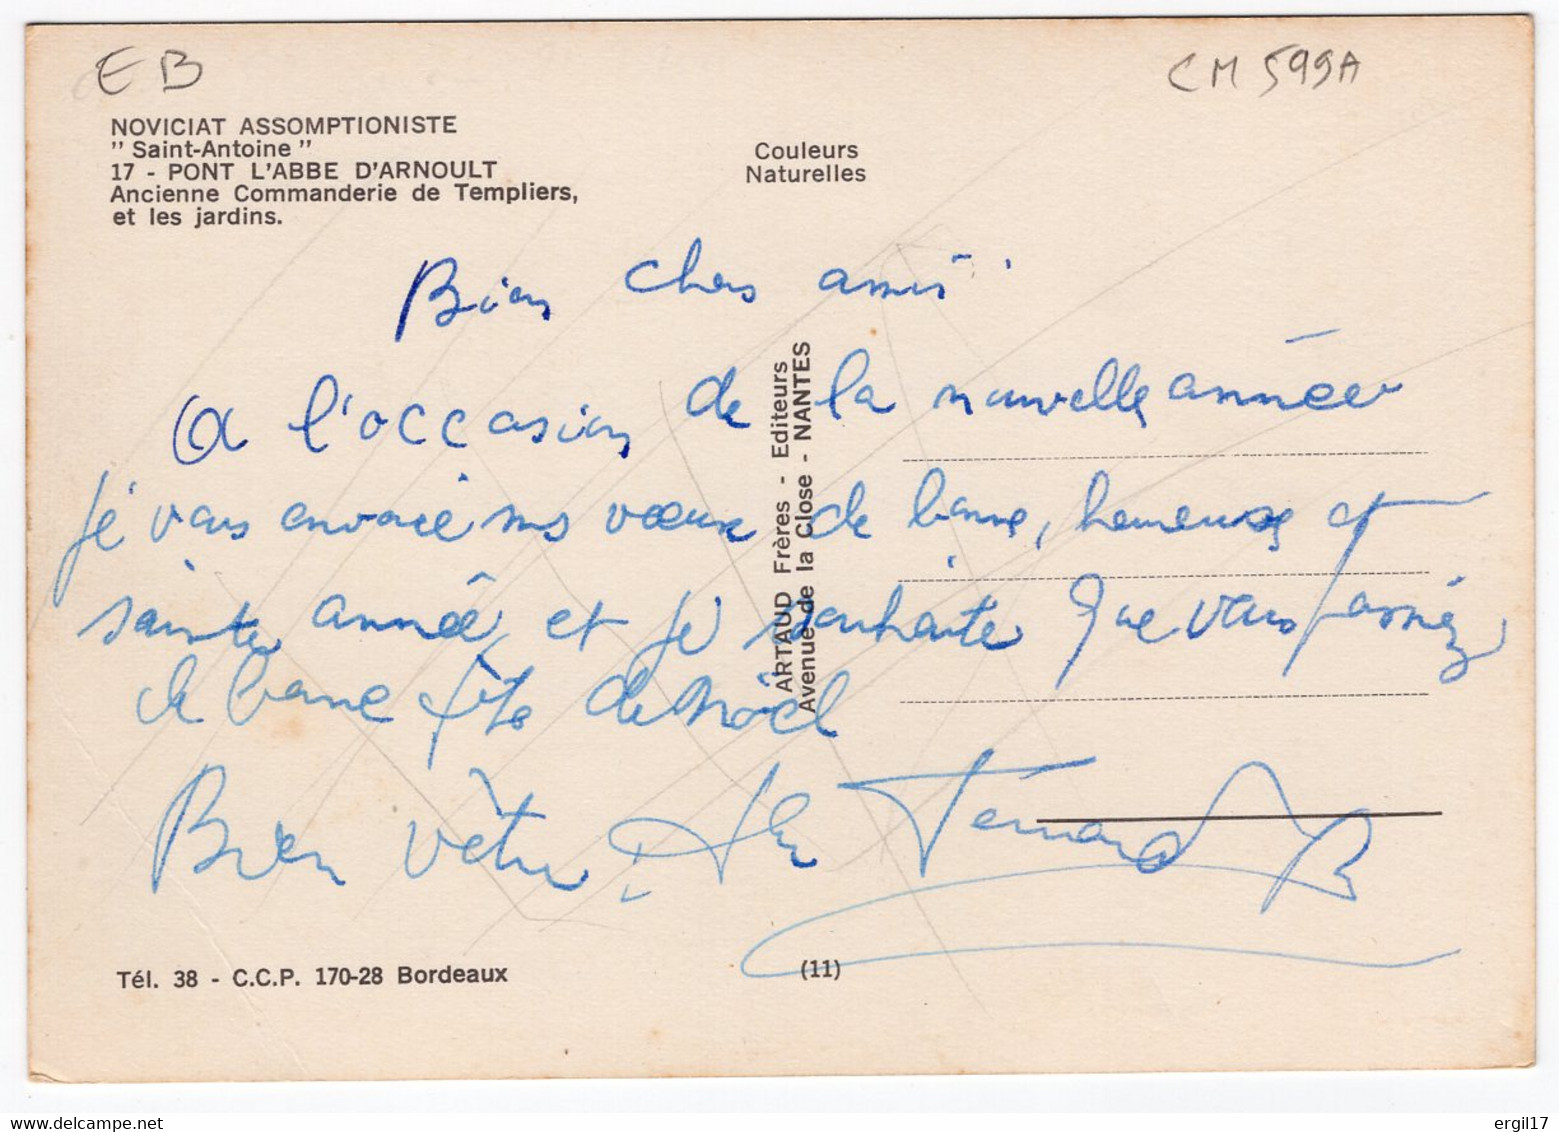 EB
CM 599A
NOVICIAT ASSOMPTIONISTE
" Saint-Antoine "
17 - PONT L'ABBE D'ARNOULT
Ancienne Commanderie de Templiers,
et les jardins.
Couleurs
Naturelles
Bien chers amis
A l'occasion de la nouvelle année
je vous envoie mes vœux de bonne, heureuse et
sainte année et je souhaite que vous passiez
de bonne fête de Noël
Bien vôtre
ARTAUD Frères - Editeurs
Avenue de la Close - NANTES
Tél. 38 - C.C.P. 170-28 Bordeaux
(11)
www.delcampe.net
ergil17